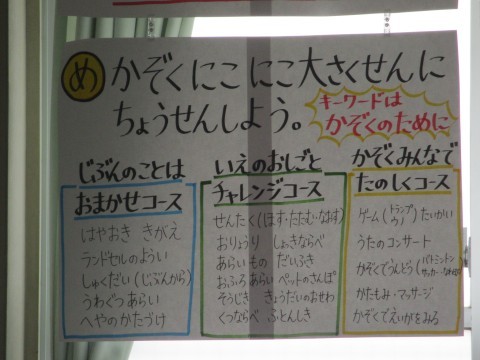 め かぞくにこにこ大さくせんに
ちょうせんしよう。
キーワードは
かぞくのために
じぶんのことは
おまかせコース
はやおき きがえ
ランドセルのようい
しゅくだい(じぶんから)
うわぐつあらい
へやのかたづけ
いえのおしごと
チャレンジコース
せんたく(ほす・たたむ・なおす)
おりょうり しょっきならべ
あらいもの だいふき
おふろあらい ペットのさんぽ
そうじき きょうだいのおせわ
くつならべ ふとんしき
かぞくみんなで
たのしくコース
ゲーム(トランプ ウノ)たいかい
うたのコンサート
かぞくでうんどう(バトミントン サッカー・なわとび)
かたもみ・マッサージ
かぞくでえいがをみる